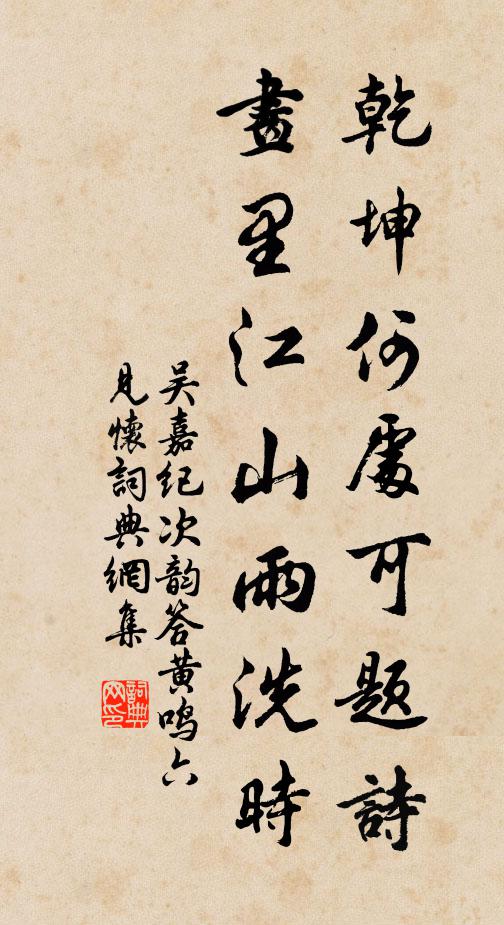 乾坤何處可題詩
畫里江山雨洗時
吴嘉纪次韵答黄鸣六
見懷詞典網集
詞典
网印